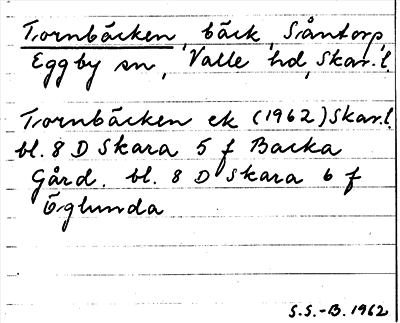 Tornbäcken, bäck, Såntorp,
Eggby sn, Valle hd, Skar.l.
Tornbäcken ek (1962) Skar.l.
bl. 8 D Skara 5 f Backa
Gård. bl. 8 D Skara 6 f
Öglunda
S.S.-B. 1962